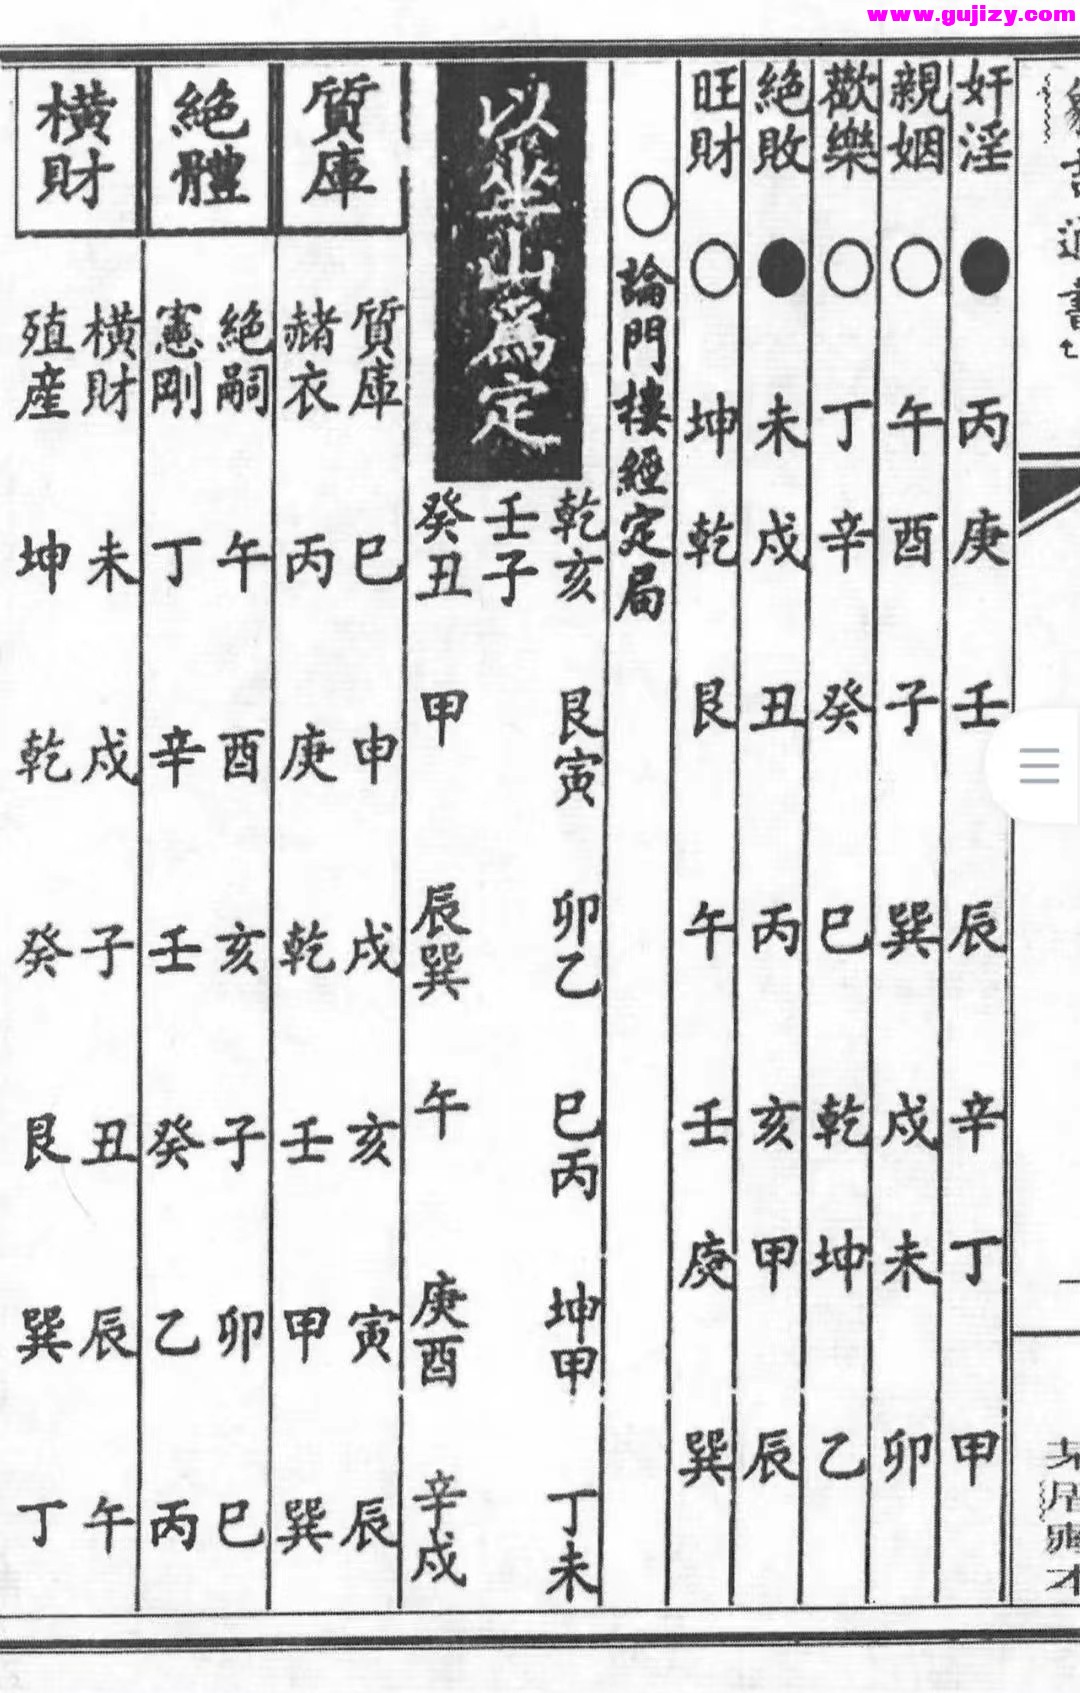 www.gujizy.com
奸淫 ● 丙庚 壬 辰 辛 丁 甲
親姻 ○ 午酉 子 巽 戌 未 卯
歡樂 ○ 丁辛 癸 巳 乾 坤 乙
絕敗 ● 未戌 丑 丙 亥 甲 辰
旺財 ○ 坤乾 艮 午 壬 庚 巽
○論門樓經定局
以坐山爲定
乾亥 艮寅 卯乙 巳丙 坤甲 丁未
壬子
癸丑 甲 辰巽 午 庚酉 辛戌
質庫
質庫 巳 申 戌 亥 寅 辰
赭衣 丙 庚 乾 壬 甲 巽
絕體
絕嗣 午 酉 亥 子 卯 巳
憲剛 丁 辛 壬 癸 乙 丙
橫財
橫財 未 戌 子 丑 辰 午
殖産 坤 乾 癸 艮 巽 丁